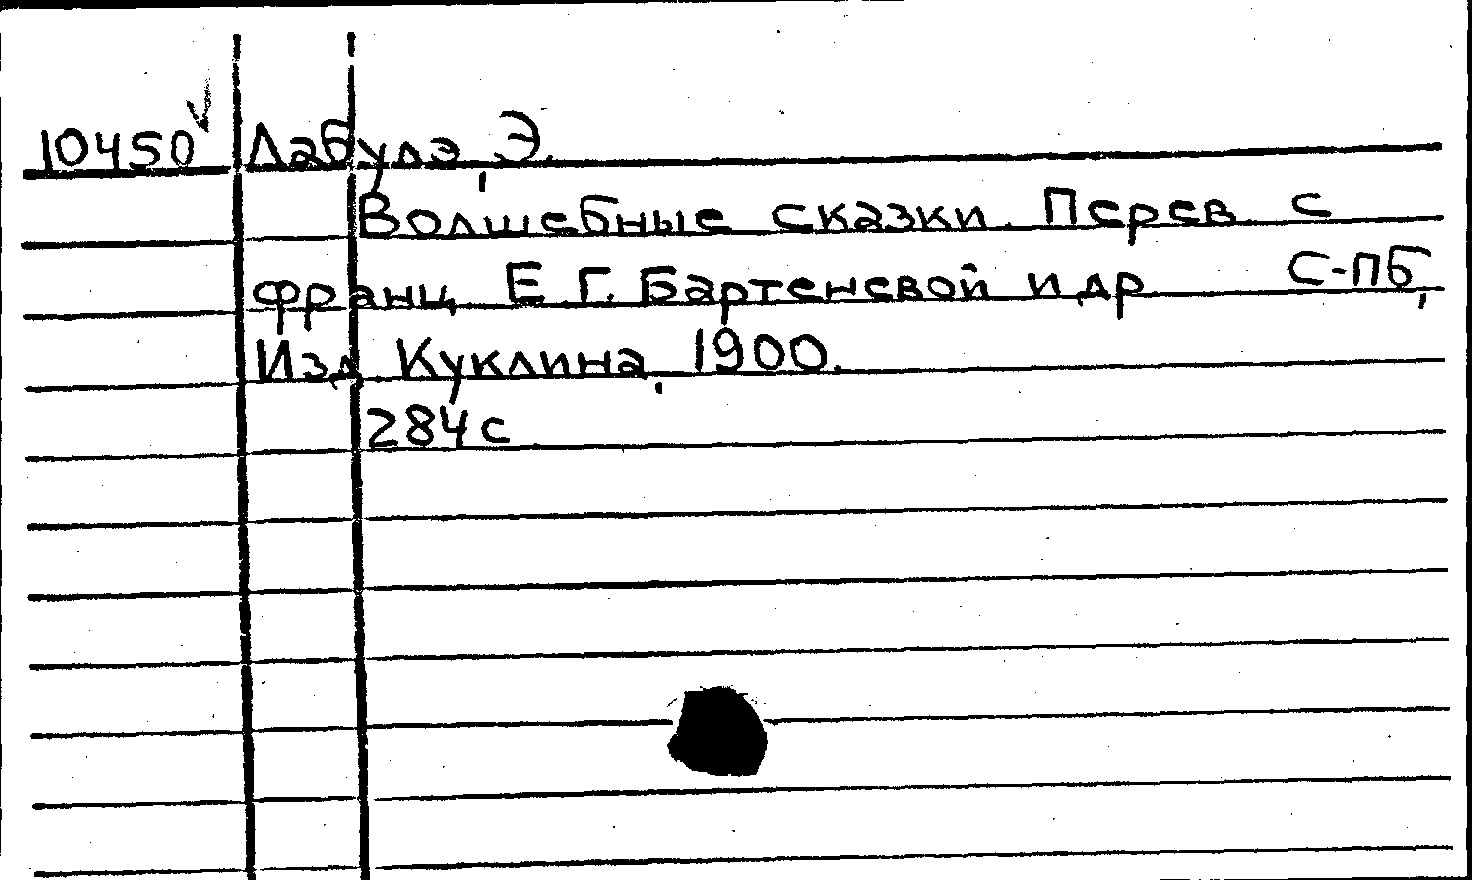 10450 Лабулэ, Э.
Волшебные сказки. Перев. с
франц. Е. Г. Бартеневой и др. С-ПБ,
Изд. Куклина, 1900.
284 с.